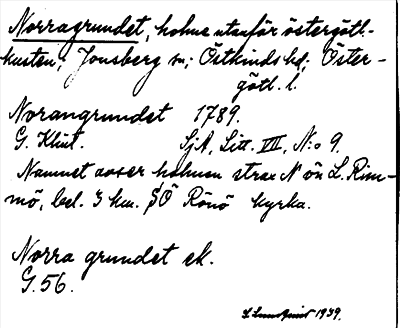 Norragrundet, holme utanför östergötl.-
kusten; Jonsberg sn; Östkinds hd; Öster-
götl. l.
Norangrundet 1789.
G. Klint. SjA, Litt. VII, N:o 9.
Namnet avser holmen strax N ön L. Rim-
mö, bel. 3 km. SÖ Rönö kyrka.
Norra grundet ek.
G. 56.
S. Lundqvist 1939.